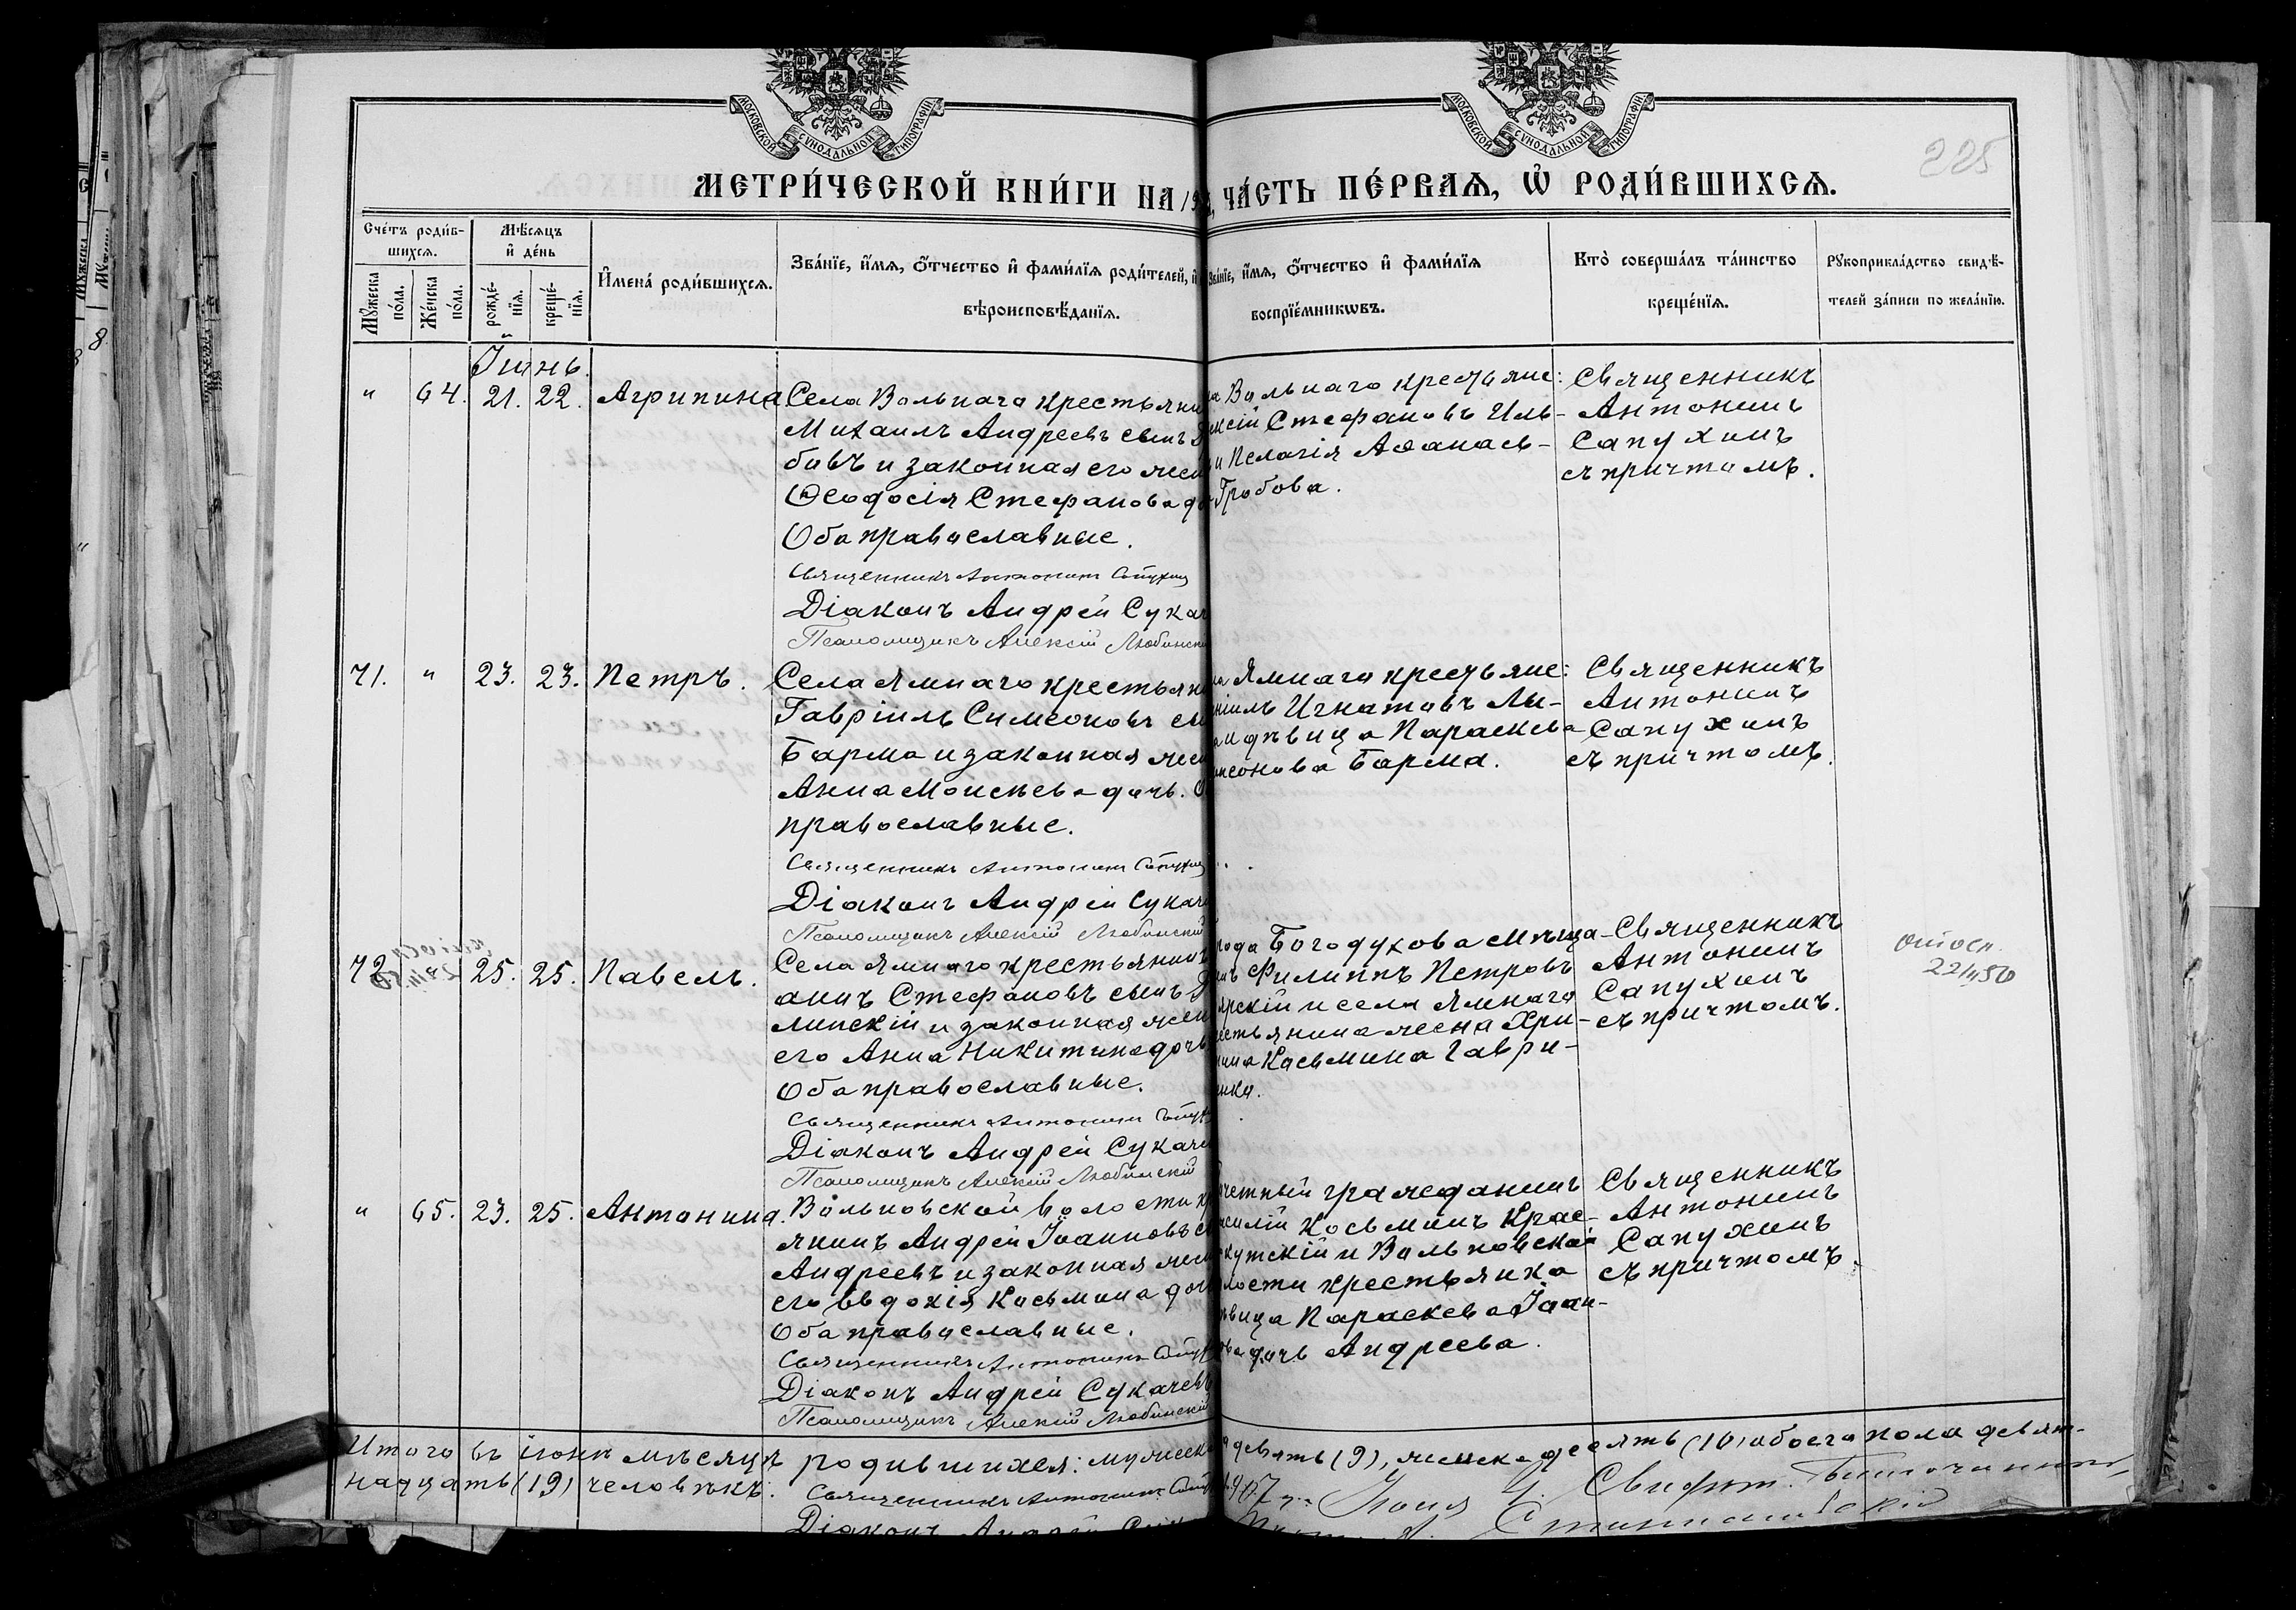 МОСКОВСКОЙ СѴНОДАЛЬНОЙ ТИПОГРАФІИ
МОСКОВСКОЙ СѴНОДАЛЬНОЙ ТИПОГРАФІИ
225
МЕТРИ́ЧЕСКОЙ КНИ́ГИ НА 19
ЧА́СТЬ ПЕ́РВАѦ, Ѡ҆ РОДИ́ВШИХСѦ.
Сче́тъ роди́в-
шихсѧ.
Мꙋжеска по́ла.
Же́нска по́ла.
Мѣ́сѧцъ
и҆ де́нь
рожде́-
нїѧ.
креще́-
нїѧ.
И҆мена̀ роди́вшихсѧ.
Зва́нїе, и҆́мѧ, ѻ҆́тчество и҆ фами́лїѧ роди́телей, и҆
вѣроисповѣ́данїѧ.
Зва́нїе, и҆́мѧ, ѻ҆́тчество и҆ фами́лїѧ
воспрїе́мникѡвъ.
Кто̀ соверша́лъ та́инство
креще́нїѧ.
Рꙋкоприкла́дство свидѣ́-
телей за́писи по жела́нїю.
Іюнь.
" 64. 21. 22. Агрипина
Села Вольнаго крестьяни
Михаилъ Андреевъ сынъ
бовъ и законная его жен
Ѳеодосія Стефанова до
Оба православные.
Священникъ Антонинъ Сапухин
Діаконъ Андрей Сукач
Псаломщикъ Алексій Любинскій
на Вольнаго крестьяне:
ексій Стефановъ Иль-
и Пелагія Аѳанась-
Гробова.
Священникъ
Антонинъ
Сапухинъ
съ причтомъ.
71. " 23. 23. Петръ.
Села Ямнаго крестьяни
Гавріилъ Симеоновъ сы
Барма и законная жен
Анна Моисѣева дочь. О
православные.
Священникъ Антонинъ Сапухин
Діаконъ Андрей Сукаче
Псаломщикъ Алексій Любинскій
на Ямнаго крестьяне:
ніилъ Игнатовъ Ли-
а и дѣвица Параскева
меонова Барма.
Священникъ
Антонинъ
Сапухинъ
съ причтомъ.
72 25. 25. Павелъ.
Села Ямнаго крестьянинъ
анъ Стефановъ сынъ
линскій и законная жен
его Анна Никитина дочь
Оба православные.
Священникъ Антонинъ Сапух
Діаконъ Андрей Сукаче
Псаломщикъ Алексій Любинскій
рода Богодухова мѣща-
нъ Филиппъ Петровъ
рскій и села Ямнаго
естьянина жена Хри-
ина Косьмина Гаври-
енко.
Священникъ
Антонинъ
Сапухинъ
съ причтомъ.
22/II 50
" 65. 23. 25. Антонина.
Вольновской волости кр
янинъ Андрей Іоанновъ сы
Андреевъ и законная жен
его Евдокія Косьмина доч
Оба православные.
Священникъ Антонинъ Сапух
Діаконъ Андрей Сукачевъ
Псаломщикъ Алексій Любинскій
четный гражданинъ
асилій Косьминъ Крас-
нокутскій и Вольновской
лости крестьянка
вица Параскева Іоан-
ова дочь Андреева.
Священникъ
Антонинъ
Сапухинъ
съ причтомъ.
Итого въ іюнѣ мѣсяцѣ родившихся: мужеска девять (9), женска десять (10) обоего пола девят-
надцать (19) человѣкъ.
Священникъ Антонинъ Сапух
Діаконъ Андрей Сук